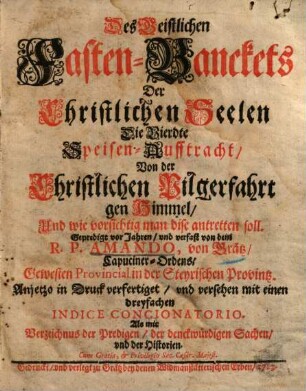 Des Geistlichen
Fasten-Banckets
Der
Christlichen Seelen
Die Vierdte
Speisen-Aufftracht/
Von der
Christlichen Pilgerfahrt
gen Himmel/
Und wie vorsichtig man dise antretten soll.
Geprediget vor Jahren/ und verfast von dem
R. P. AMANDO, von Grätz/
Capuciner-Ordens/
Gewesten Provincial in der Steyrischen Provintz.
Anjetzo in Druck verfertiget/ und versehen mit einen
dreyfachen
INDICE CONCIONATORIO.
Als mit
Verzeichnus der Predigen/ der denckwürdigen Sachen/
und der Historien.
Cum Gratia, & Privilegio Sac. Cæsar. Majest.
Gedruckt/ und verlegt zu Grätz bey denen Widmanstätterischen Erben/